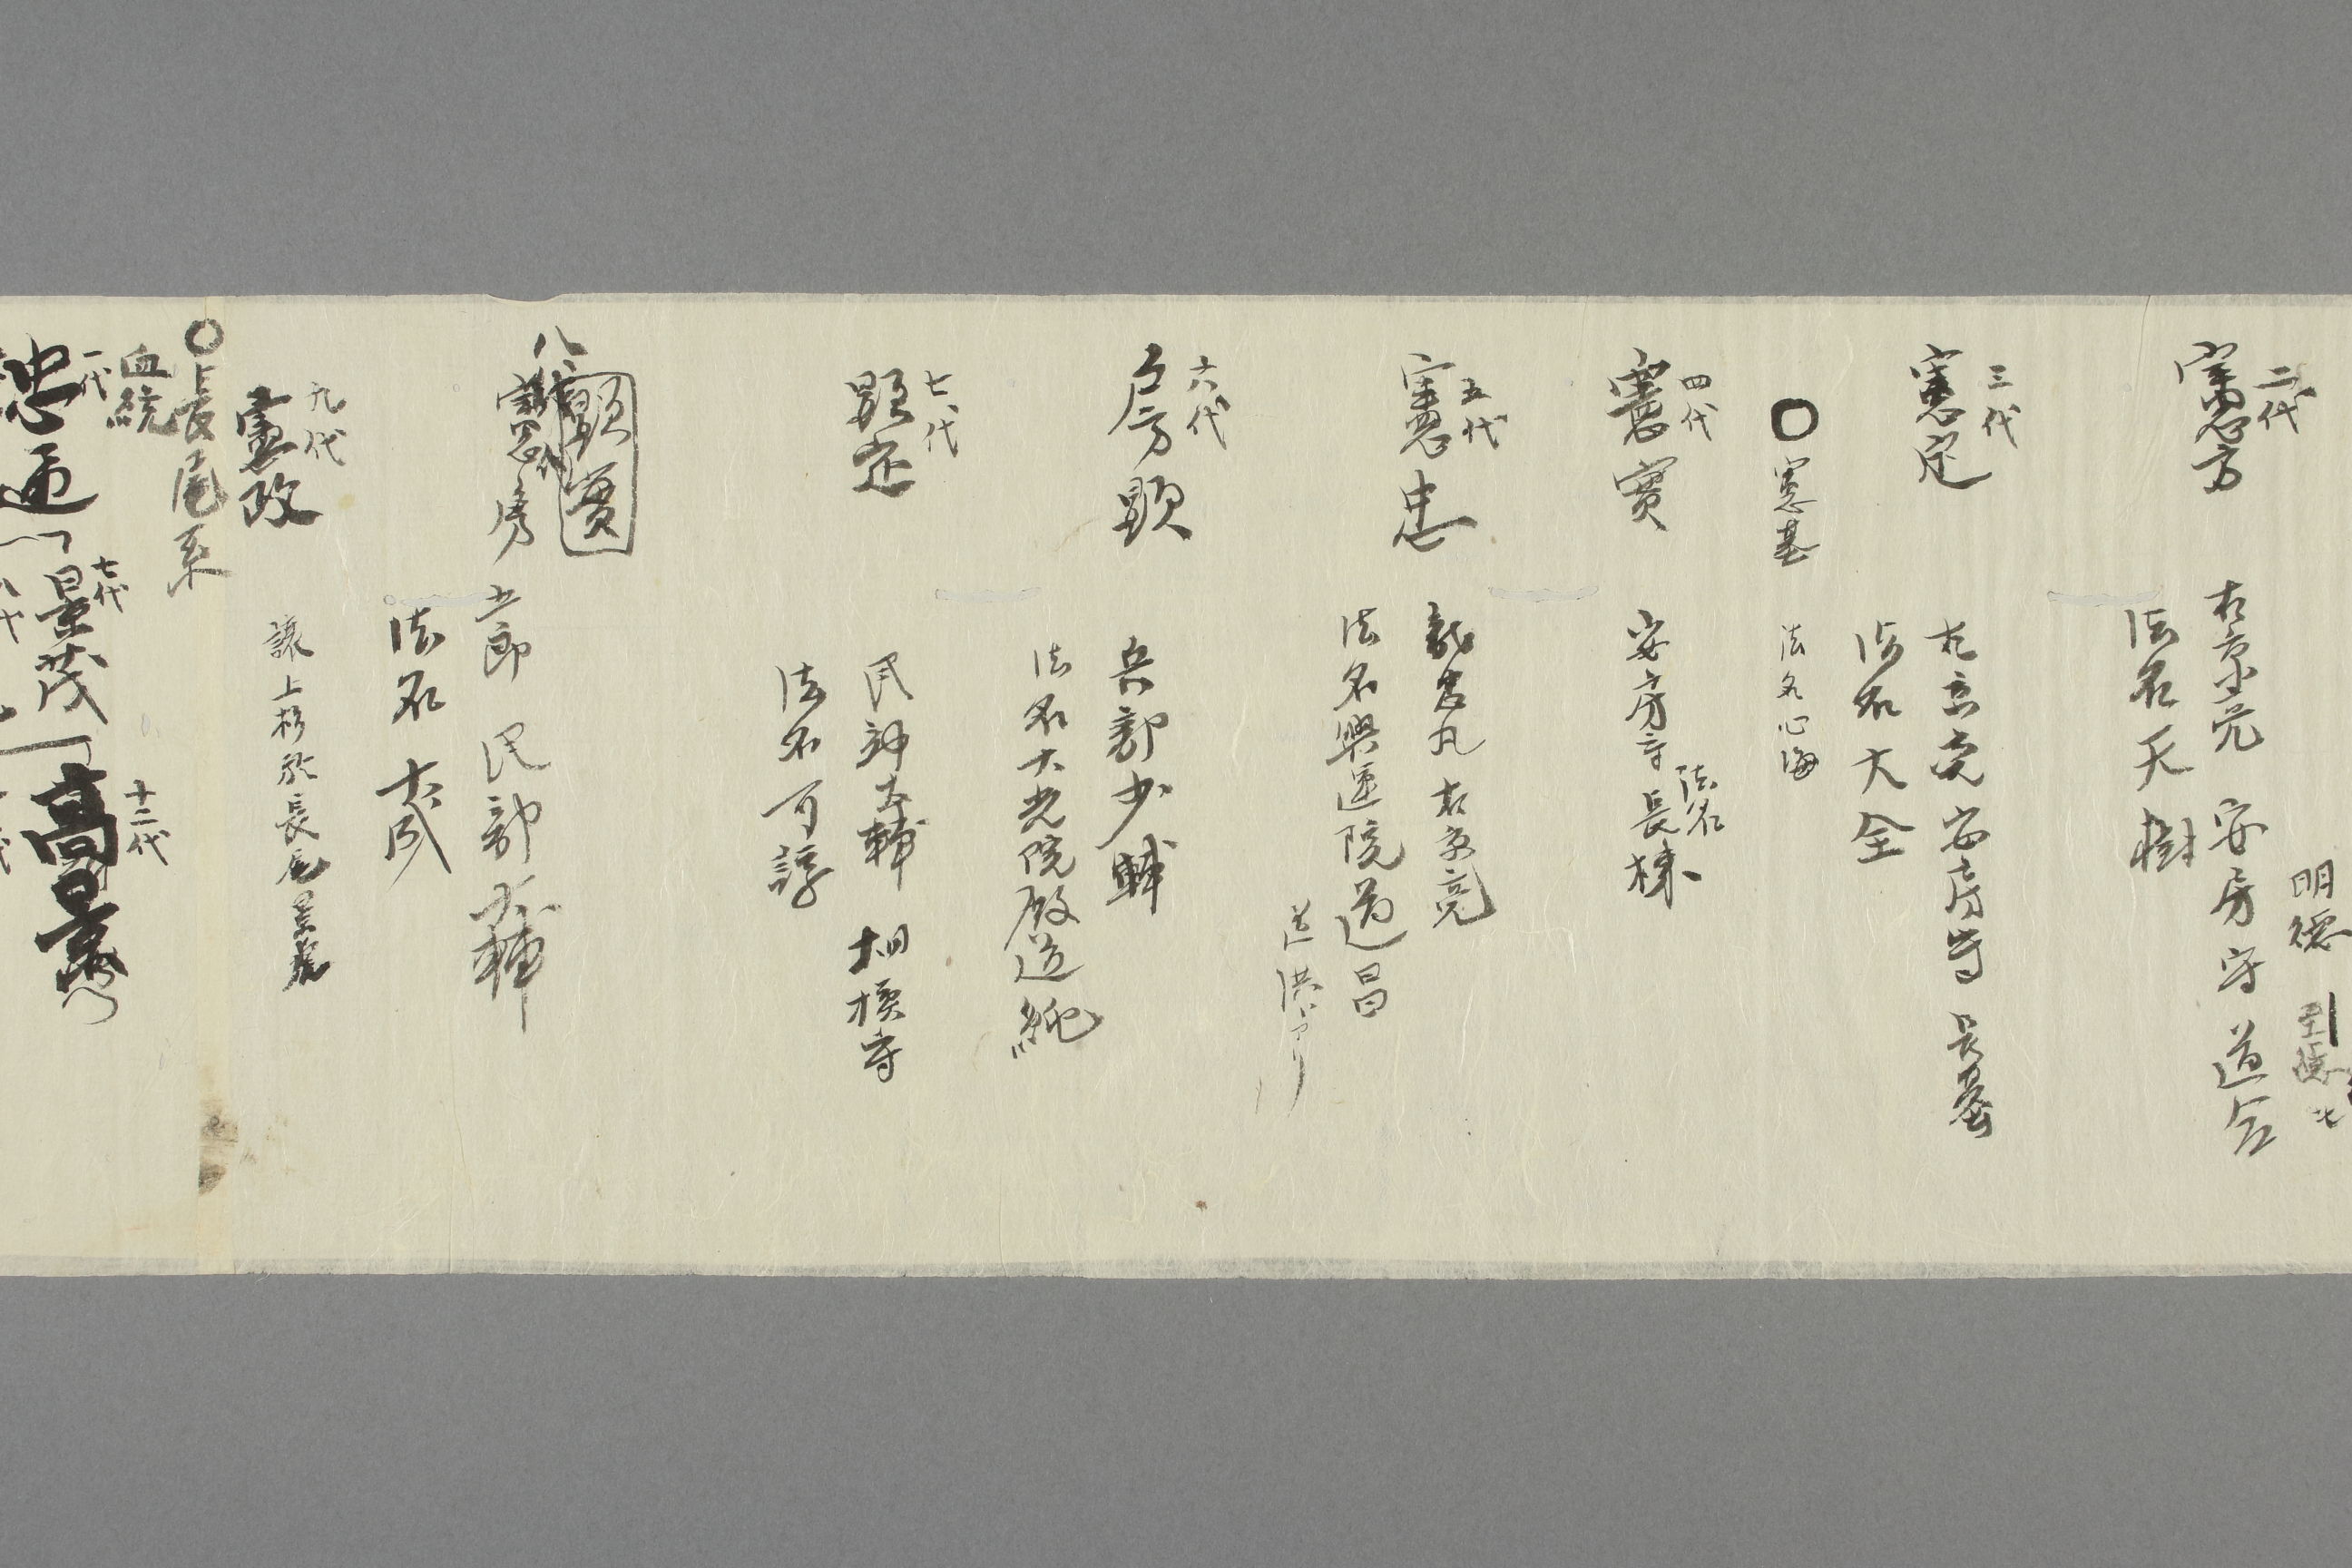 二代
憲方
右京亮 安房守 道合
明徳
法名天樹
三代
憲定
左京亮 安房守 長基
法名大全
○憲基
法名心海
四代
憲實
安房守 長棟
法名
五代
憲忠
龍忠丸 右京亮
法名興運院道昌
六代
房顕
兵部少輔
法名大光院殿道純
七代
顕定
民部大輔 相模守
法名可諄
顕實
八代
憲房
五郎 民部大輔
法名大成
九代
憲政
譲上杉於長尾景虎
○長尾系
血統
一代
忠通
七代
景茂
十二代
高景